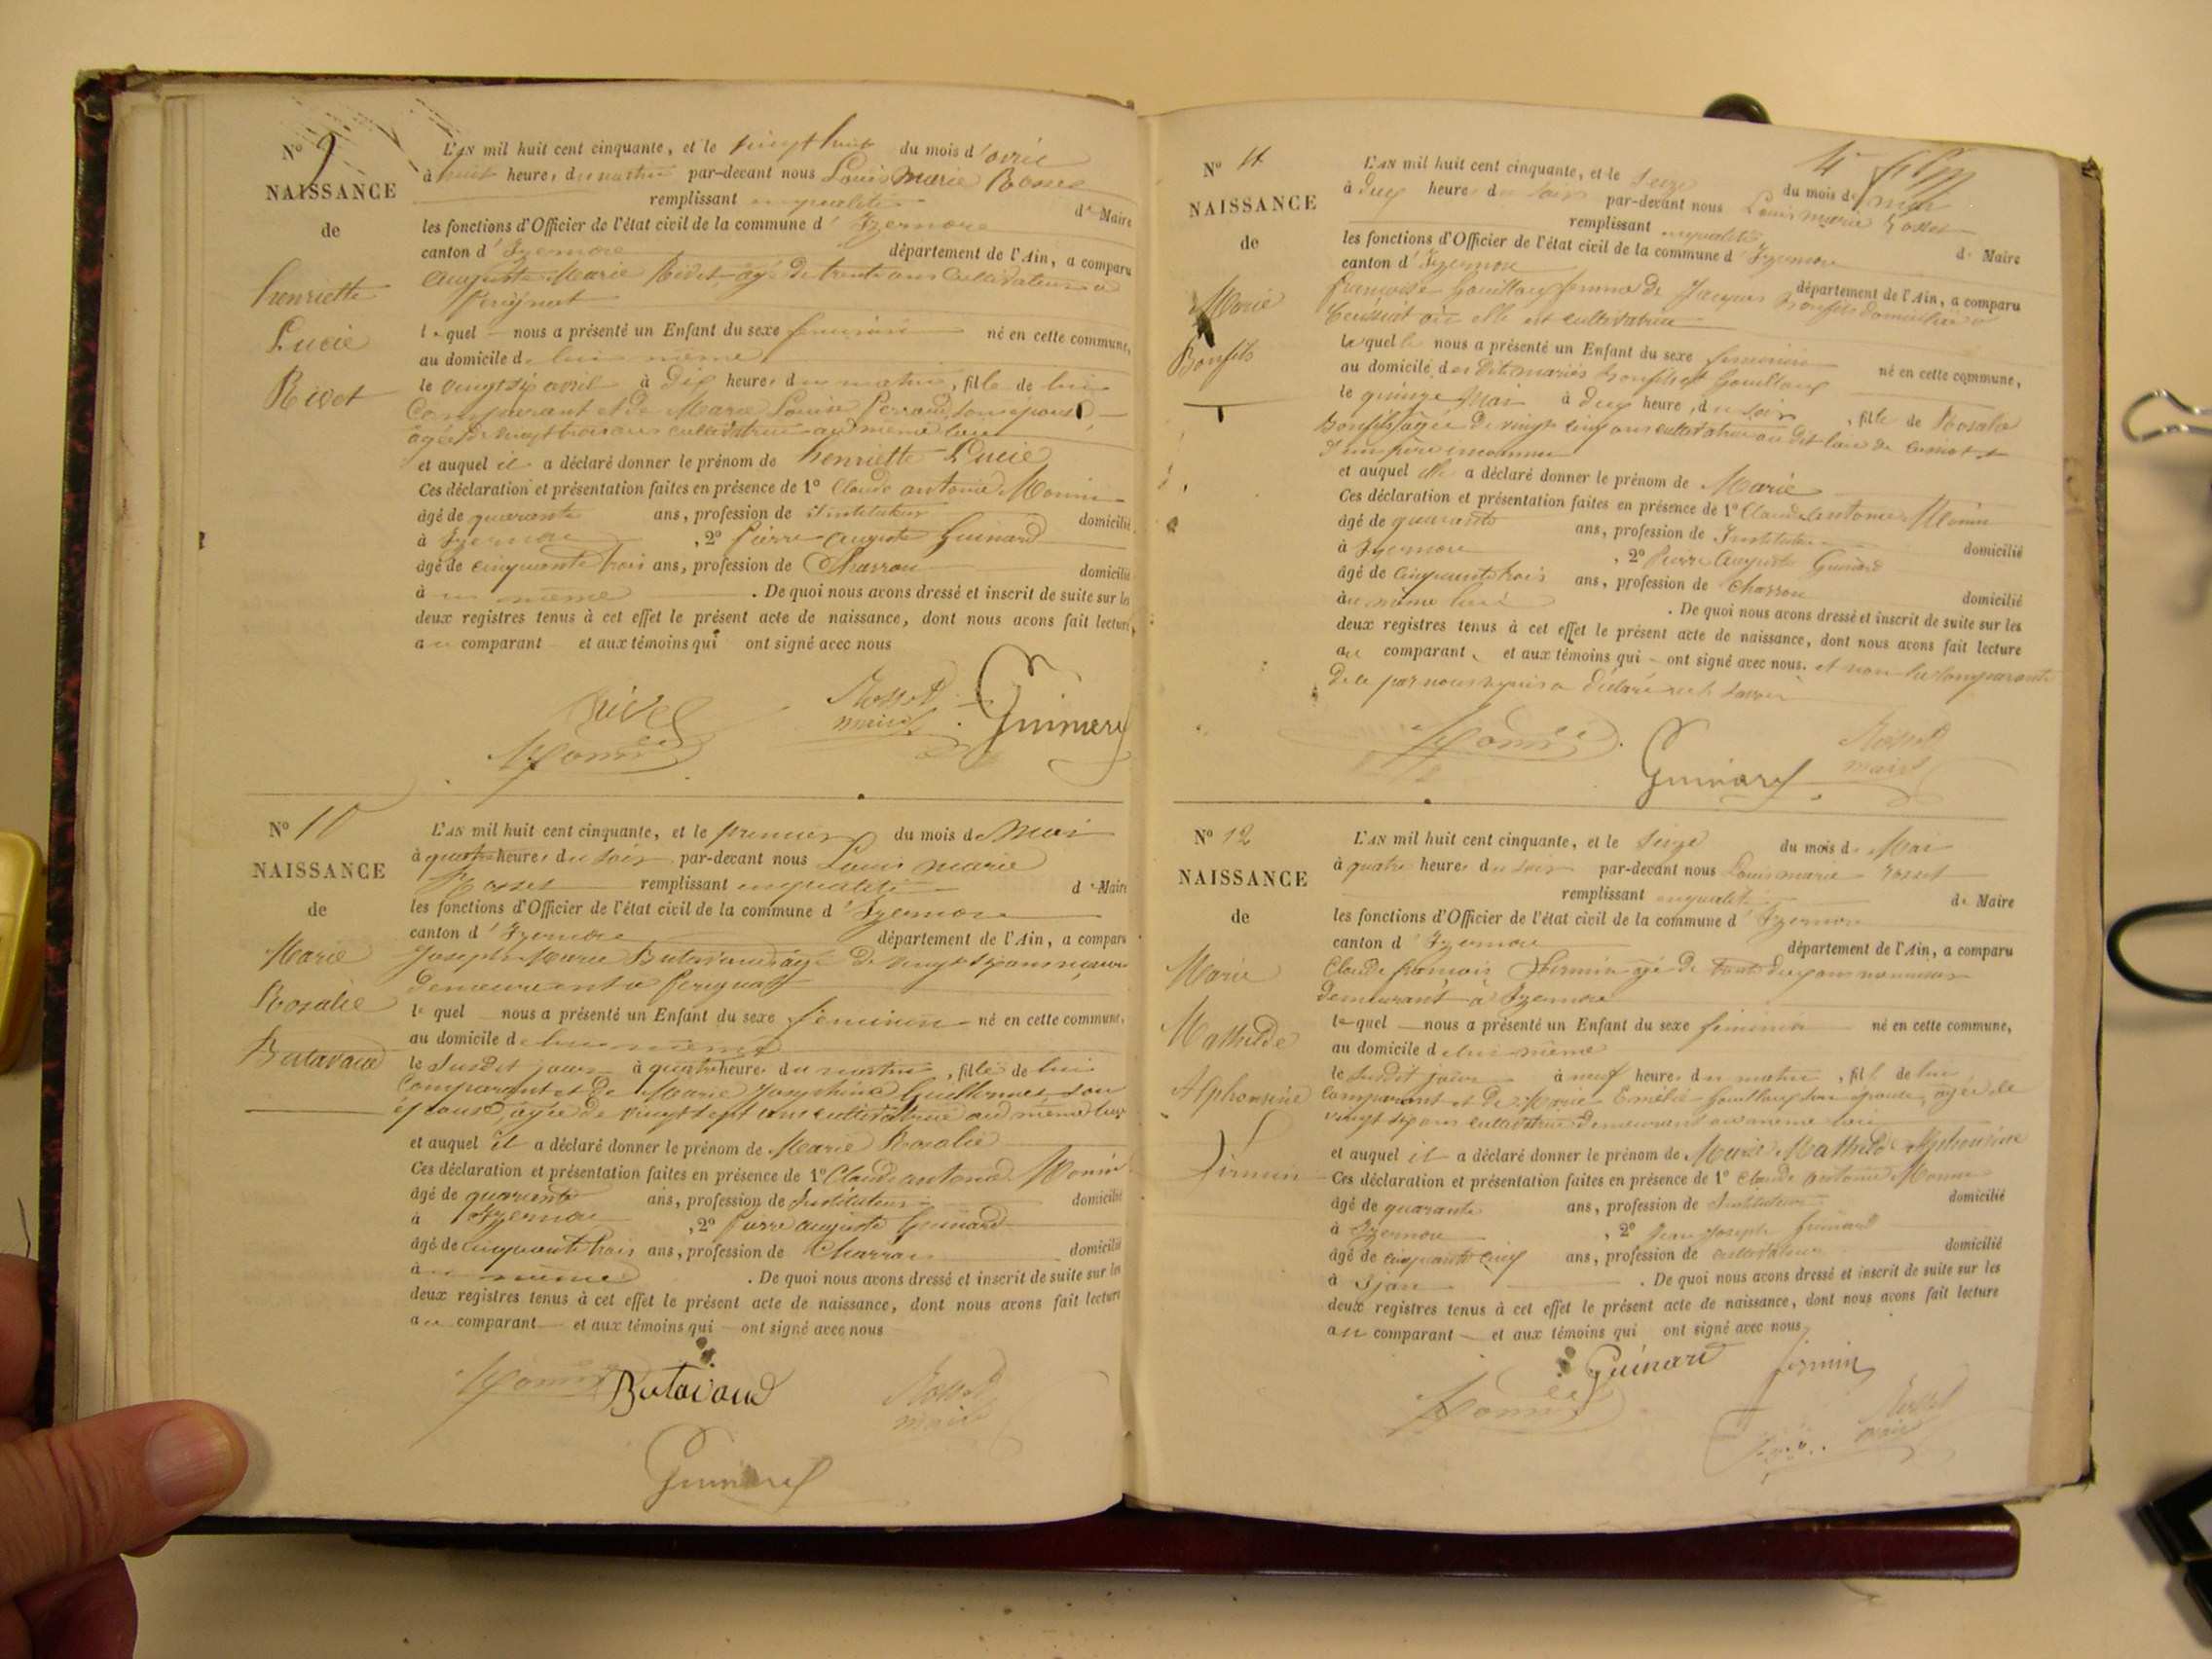 N° 9
NAISSANCE
de
henriette
Lucie
Rivet
L'AN mil huit cent cinquante, et le vingt huit du mois d'avril
à huit heures du matin par-devant nous Louis Marie Rosset
remplissant en qualité de Maire
les fonctions d'Officier de l'état civil de la commune d'Izernore
canton d'Izernore département de l'Ain, a comparu
Auguste Marie Rivet âgé de trente ans Cultivateur à
Perignat
lequel nous a présenté un Enfant du sexe feminin né en cette commune,
au domicile de lui même
le vingt six avril à dix heures du matin, fille de lui
Comparant et de Marie Louise Perraud son épouse,
âgée de vingt trois ans cultivatrice au même lieu
et auquel il a déclaré donner le prénom de henriette Lucie
Ces déclaration et présentation faites en présence de 1° Claude antoine Monin
âgé de quarante ans, profession de instituteur domicilié
à Izernore, 2° Pierre Auguste Guinard
âgé de cinquante trois ans, profession de Charron domicilié
à même. De quoi nous avons dressé et inscrit de suite sur les
deux registres tenus à cet effet le présent acte de naissance, dont nous avons fait lecture,
au comparant et aux témoins qui ont signé avec nous
Rivet
Rosset
maire
Guinard
Monin
N° 10
NAISSANCE
de
Marie
Rosalie
Butavand
L'AN mil huit cent cinquante, et le premier du mois de Mai
à quatre heures du soir par-devant nous Louis marie
Rosset remplissant en qualité de Maire
les fonctions d'Officier de l'état civil de la commune d'Izernore
canton d'Izernore département de l'Ain, a comparu
Joseph Marie Butavand âgé de vingt six ans
demeurant à Perignat
lequel nous a présenté un Enfant du sexe féminin né en cette commune,
au domicile de lui même
le Susdit jour à quatre heures du matin, fille de lui
Comparant et de Marie Josephine Guillermet son
épouse, âgée de vingt sept ans cultivatrice au même lieu
et auquel il a déclaré donner le prénom de Marie Rosalie
Ces déclaration et présentation faites en présence de 1° Claude antoine Monin
âgé de quarante ans, profession de Instituteur domicilié
à Izernore, 2° Pierre auguste Guinard
âgé de cinquante trois ans, profession de Charron domicilié
à même. De quoi nous avons dressé et inscrit de suite sur les
deux registres tenus à cet effet le présent acte de naissance, dont nous avons fait lecture
au comparant et aux témoins qui ont signé avec nous
Monin
Butavand
Rosset
maire
Guinard
N° 11
NAISSANCE
de
Marie
Bonfils
L'AN mil huit cent cinquante, et le Seize du mois de mai
à deux heures du soir par-devant nous Louis marie Rosset
remplissant en qualité de Maire
les fonctions d'Officier de l'état civil de la commune d'Izernore
canton d'Izernore département de l'Ain, a comparu
françoise Gouilloux femme de Jacques Bonfils domiciliée à
Ceissiat où elle est cultivatrice
Lequel nous a présenté un Enfant du sexe feminin né en cette commune,
au domicile des dits mariés Bonfils et Gouilloux
le quinze Mai à deux heures du soir, fille de Rosalie
Bonfils âgée de vingt cinq ans cultivatrice au dit lieu de
d'un père inconnu
et auquel elle a déclaré donner le prénom de Marie
Ces déclaration et présentation faites en présence de 1° Claude antoine Monin
âgé de quarante ans, profession de Instituteur domicilié
à Izernore, 2° Pierre Auguste Guinard
âgé de cinquante trois ans, profession de Charron domicilié
au même lieu. De quoi nous avons dressé et inscrit de suite sur les
deux registres tenus à cet effet le présent acte de naissance, dont nous avons fait lecture
au comparant, et aux témoins qui ont signé avec nous. et non la comparante
de ce par nous requise a déclaré ne le savoir
Monin
Guinard
Rosset
maire
N° 12
NAISSANCE
de
Marie
Mathilde
Alphonsine
Firmin
L'AN mil huit cent cinquante, et le Seize du mois de Mai
à quatre heures du soir par-devant nous Louis marie Rosset
remplissant en qualité de Maire
les fonctions d'Officier de l'état civil de la commune d'Izernore
canton d'Izernore département de l'Ain, a comparu
Claude françois Firmin âgé de trente deux ans
demeurant à Izernore
lequel nous a présenté un Enfant du sexe feminin né en cette commune,
au domicile de lui même
le susdit jour à neuf heures du matin, fille de lui
Comparant et de Marie Emélie Gouilloux son épouse, âgée de
vingt six ans cultivatrice demeurant au même lieu
et auquel il a déclaré donner le prénom de Marie Mathilde Alphonsine
Ces déclaration et présentation faites en présence de 1° Claude antoine Monin
âgé de quarante ans, profession de Instituteur domicilié
à Izernore, 2° Jean Joseph Guinard
âgé de cinquante cinq ans, profession de cultivateur domicilié
à. De quoi nous avons dressé et inscrit de suite sur les
deux registres tenus à cet effet le présent acte de naissance, dont nous avons fait lecture
au comparant et aux témoins qui ont signé avec nous
Guinard
firmin
Monin
Rosset
maire